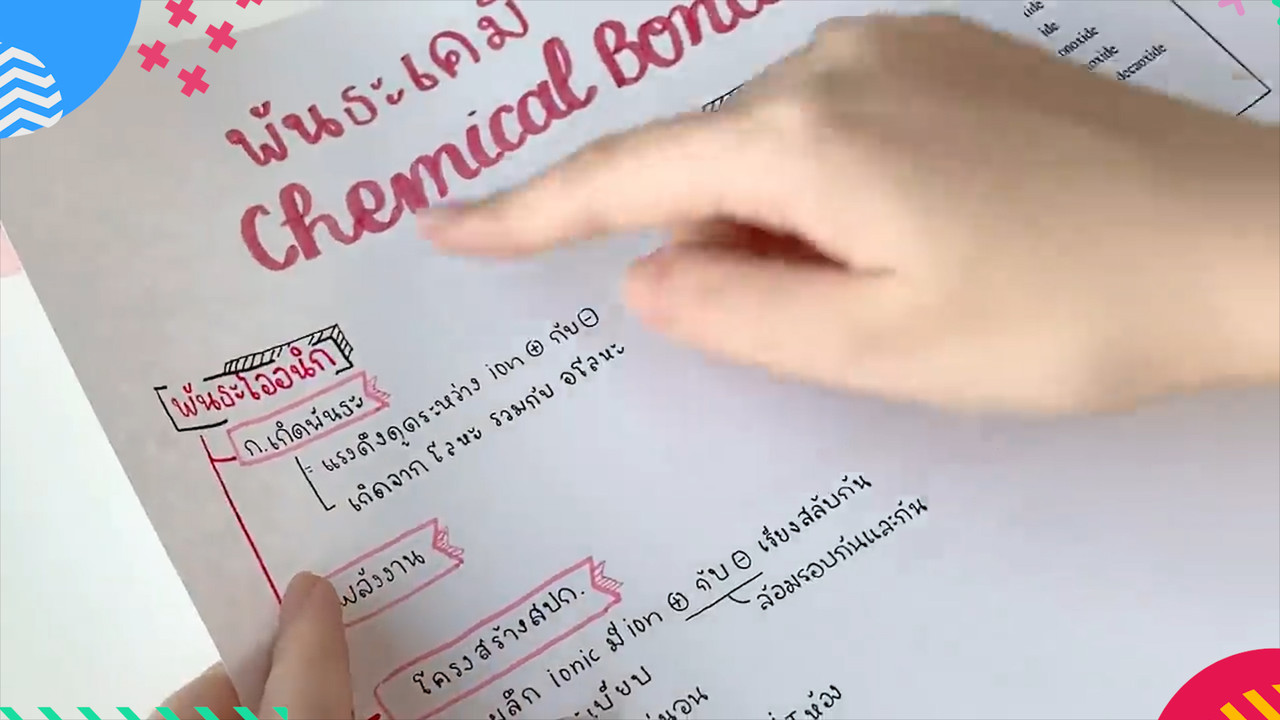 พันธะเคมี
Chemical Bond
ide
onoxide
oxide
decaoxide
พันธะไอออนิก
ก.เกิดพันธะ
แรงดึงดูดระหว่าง ion ⊕ กับ ⊖
เกิดจาก โลหะ รวมกับ อโลหะ
พลังงาน
โครงสร้างสปก.
ผลึก ionic มี ion ⊕ กับ ⊖ เรียงสลับกัน
ล้อมรอบกันและกัน